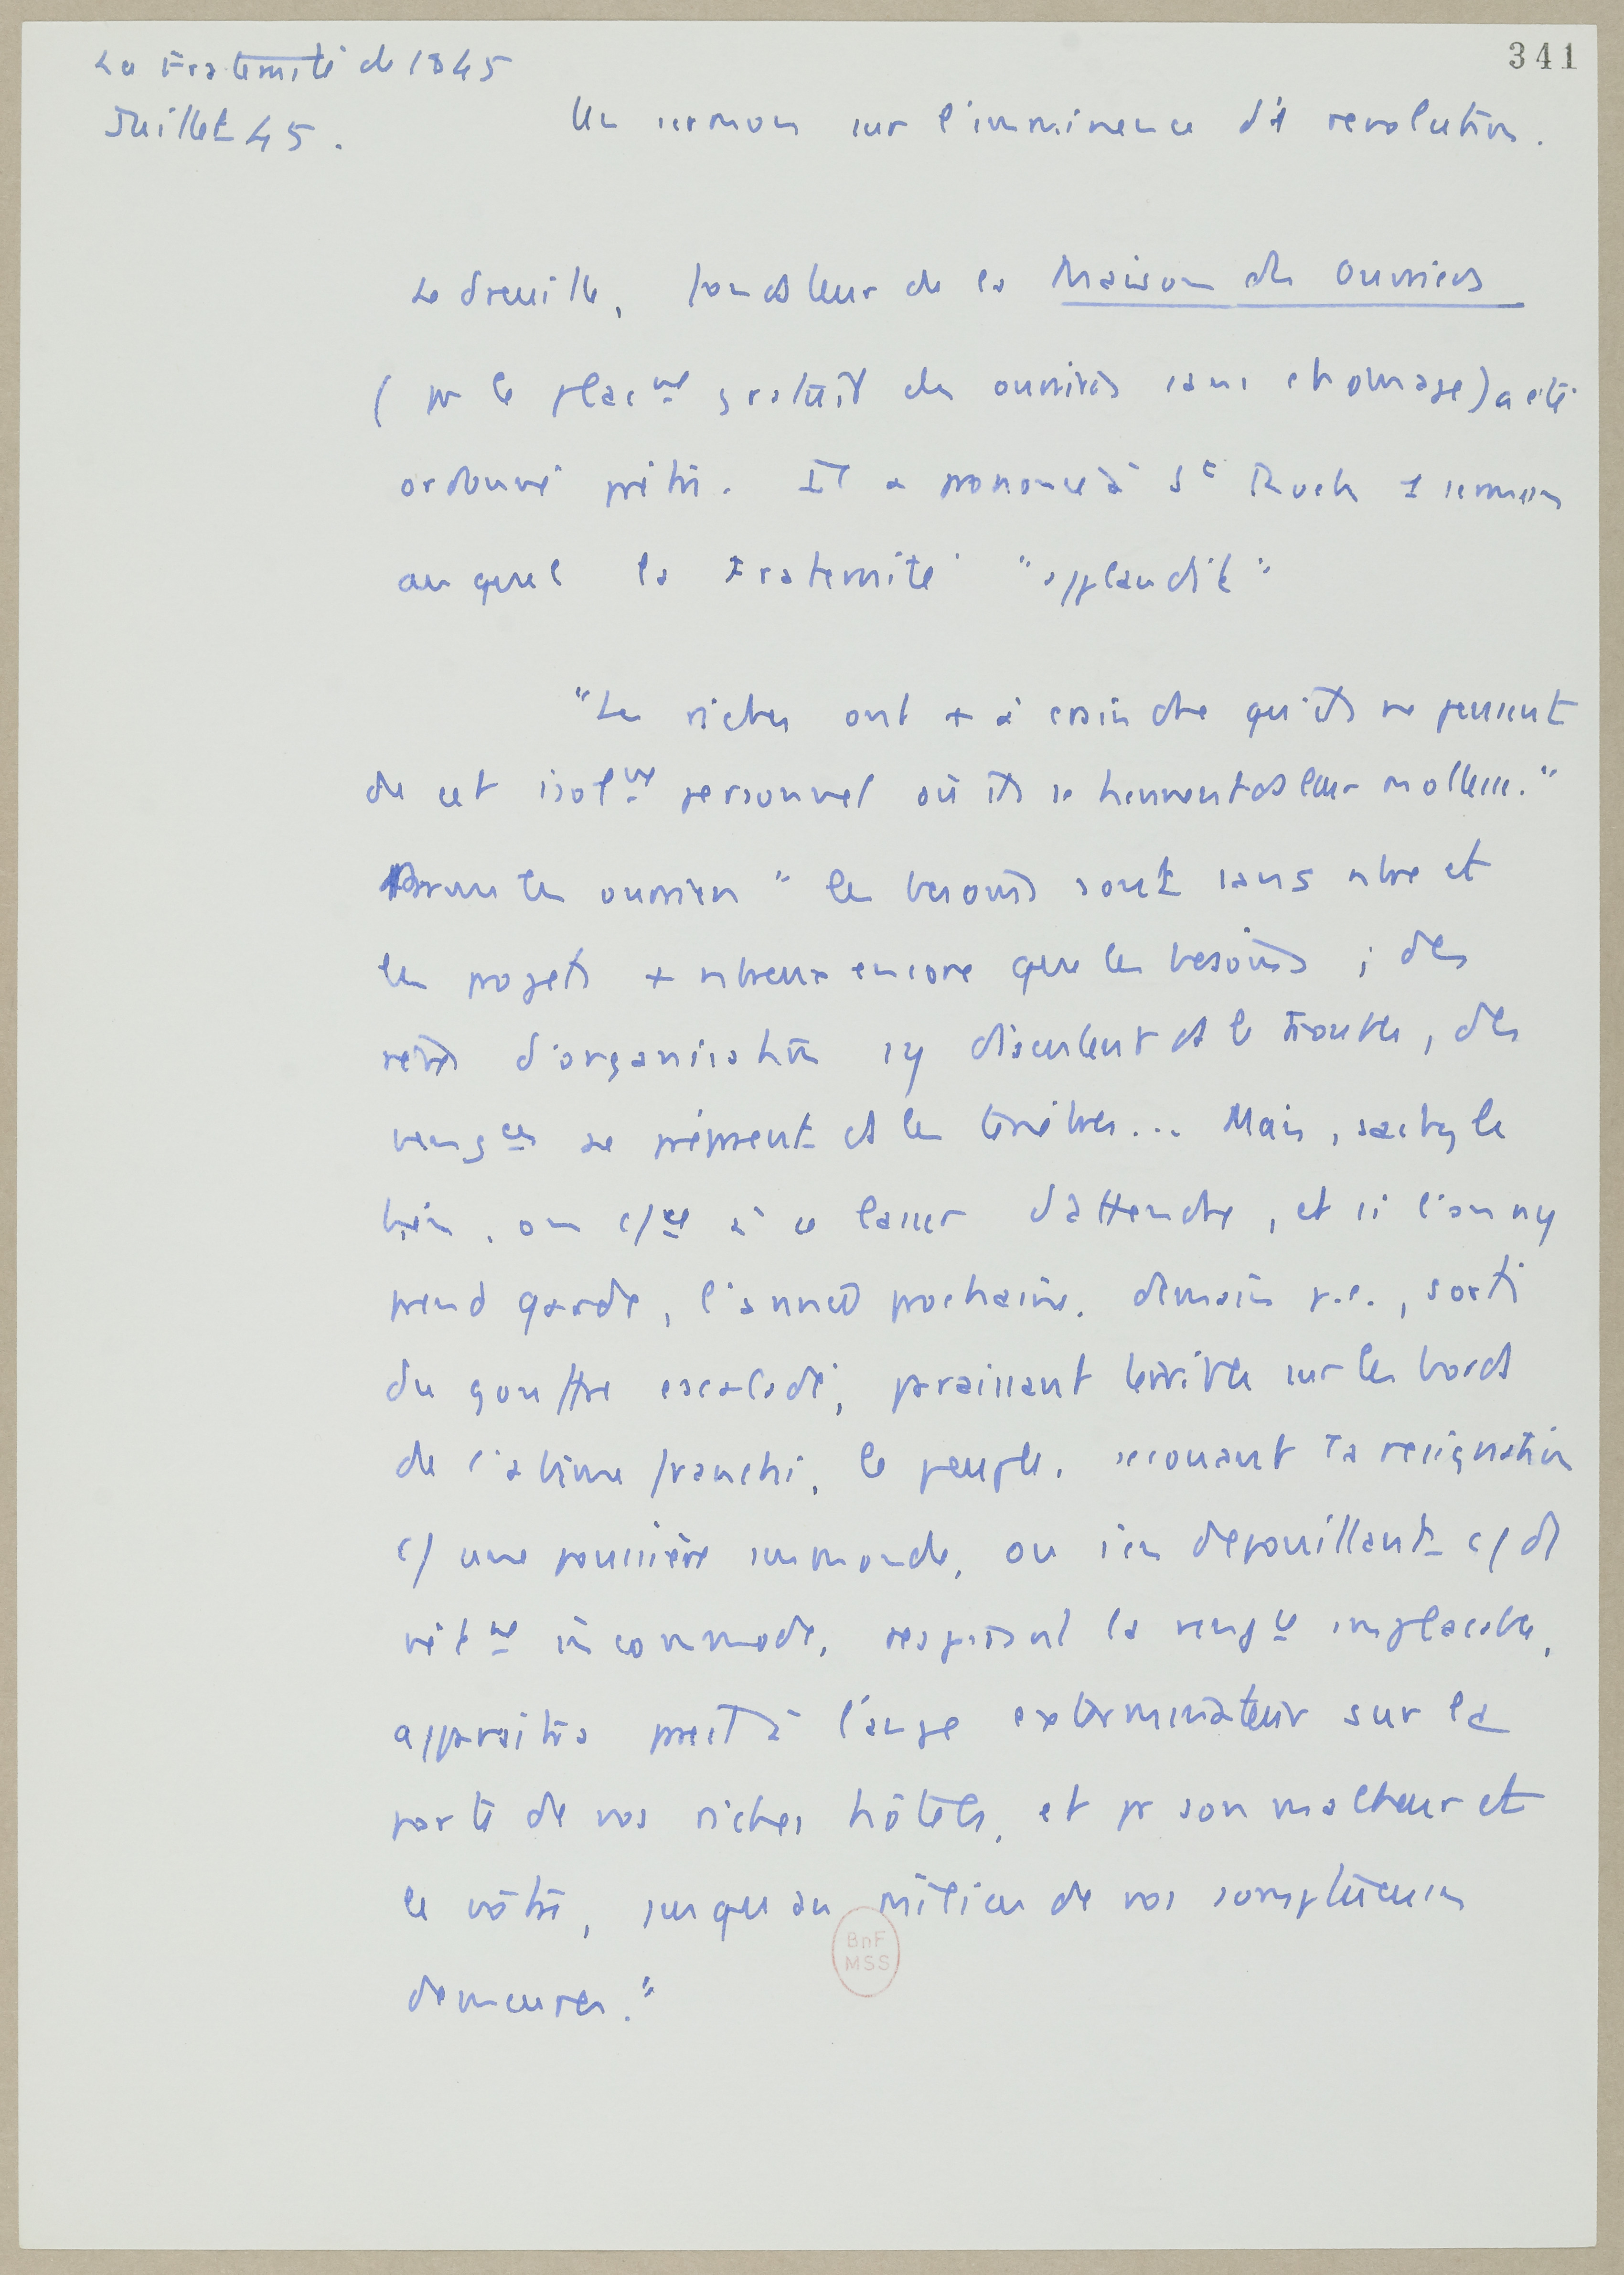 341
La Fraternité de 1845
Juillet 45.
Un sermon sur l'imminence d'1 revolution.
Ledreuille, fondateur de la Maison des Ouvriers
(pr le placmt gratuit des ouvriers sans chomage) a été
ordonné prêtre. Il a prononcé à St Roch 1 sermon
auquel la Fraternité "applaudit"
"Les riches ont + à craindre qu'ils ne pensent
de cet isolmt personnel où ils se tiennent ds leur mollesse."
Parmi les ouvriers "les besoins sont sans nbre et
les projets + nbreux encore que les besoins ; des
rêves d'organisation s'y discutent ds le trouble, des
vengces se préparent ds les ténèbres... Mais, sachez le
bien, on cce à se lasser d'attendre, et si l'on n'y
prend garde, l'année prochaine, demain p.e., sorti
du gouffre escaladé, paraissant terrible sur les bords
de l'abîme franchi, le peuple, secouant sa resignation
c/ une poussière immonde, ou s'en dépouillant c/ d'1
vêtmt incommode, respirant la vengce implacable,
apparaitra pareil à l'ange exterminateur sur la
porte de vos riches hôtels, et pr son malheur et
le vôtre, jusqu'au milieu de vos somptueuses
demeures."
BnF
MSS